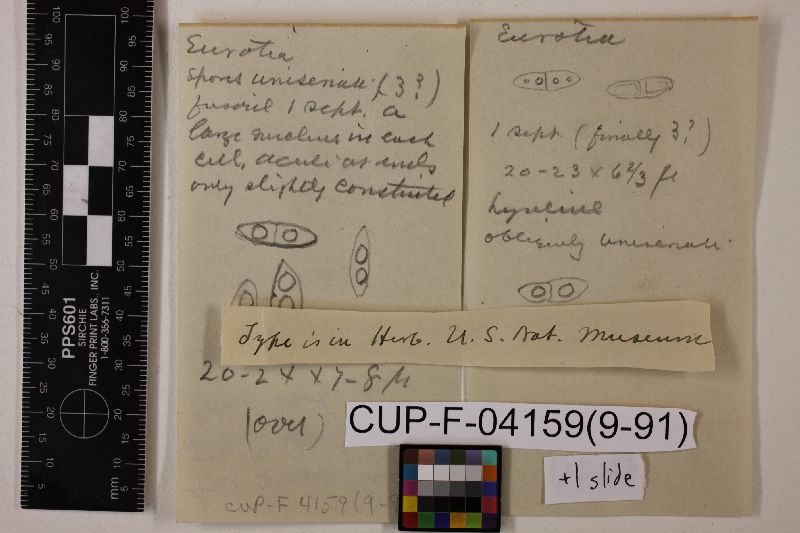 Eurotia
spores uniseriate (3?)
fusoid 1 sept. a
large nucleus in each
cell, acute at ends
only slightly constricted
20-24 x 7-8 µ
(over)
CUP-F 4159(9-9
Eurotia
1 sept. (finally 3?)
20-23 x 6 2/3 µ
hyaline
obliquely uniseriate.
Type is in Herb. U. S. Nat. Museum
CUP-F-04159(9-91)
+1 slide
PPS601
SIRCHIE
FINGER PRINT LABS, INC.
1-800-356-7311
100
90
80
70
60
50
40
30
20
10
5
100
95
90
85
80
75
70
65
60
55
50
45
40
35
30
25
20
15
10
5
mm